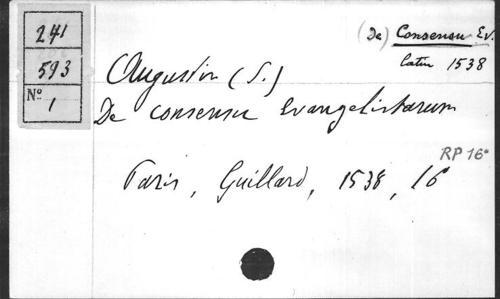 241
593
Nº 1
(De) Consensu Ev.
latin 1538
Augustin (S.)
De consensu Evangelistarum
RP 16°
Paris, Guillard, 1538, 16°